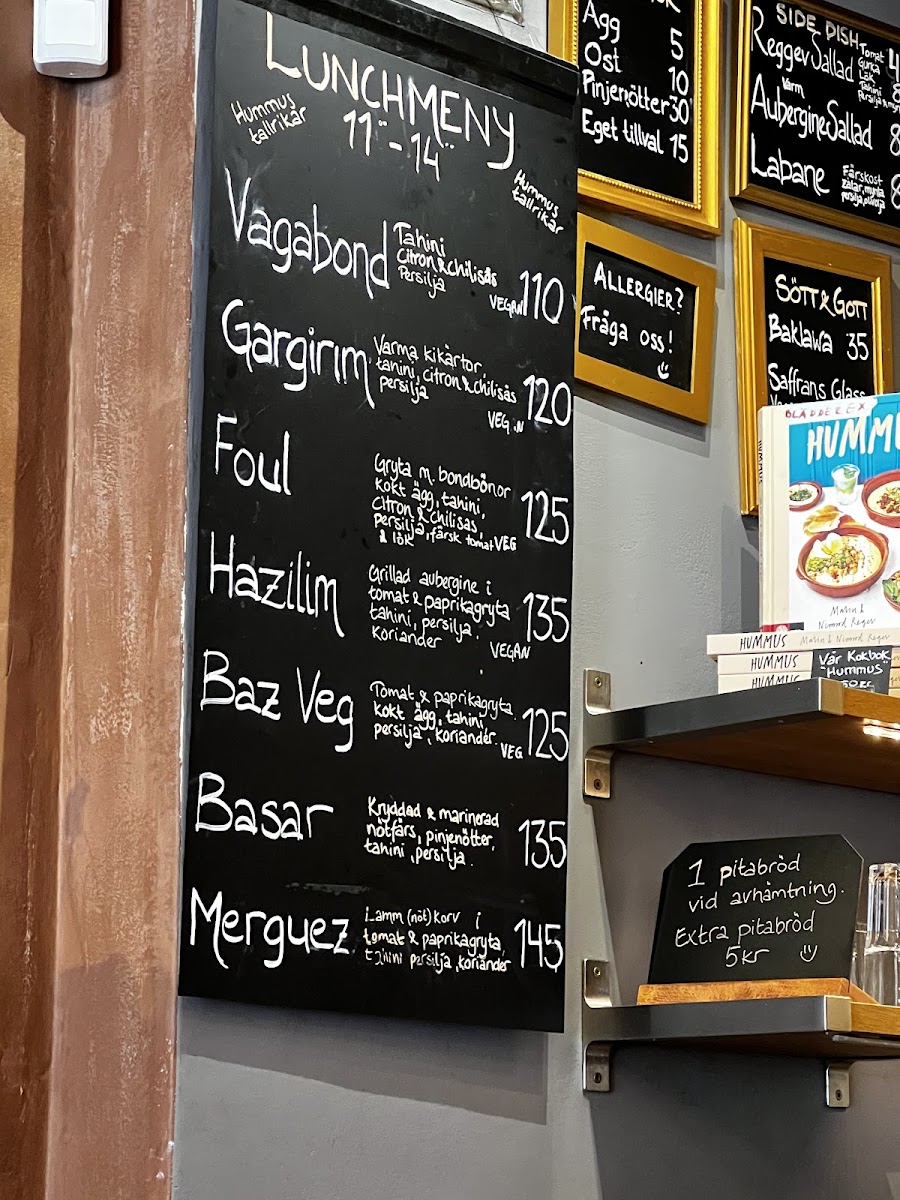 LUNCHMENY
11⁰⁰ - 14⁰⁰
Hummus
tallrikar
Hummus
tallrikar
Vagabond
Tahini
Citron & chilisås
Persilja
VEGAN 110
Gargirim
Varma kikärtor
tahini, citron & chilisås
persilja
VEG.N 120
Foul
Gryta m. bondbönor
kokt ägg, tahini,
citron & chilisås,
persilja, färsk tomat VEG
& lök
125
Hazilim
Grillad aubergine i
tomat & paprikagryta
tahini, persilja.
koriander
VEGAN 135
Baz Veg
Tomat & paprikagryta.
kokt ägg, tahini,
persilja, koriander.
VEG 125
Basar
Kryddad & marinerad
nötfärs, pinjenötter,
tahini, persilja.
135
Merguez
Lamm (nöt) korv i
tomat & paprikagryta,
tahini persilja, koriander
145
Ägg 5
Ost 10
Pinjenötter 30
Eget tillval 15
SIDE DISH
Reggev Sallad
Tomat
Gurka
Lök
Tahini
Varm
Aubergine Sallad
Labane
Färskost
zatar, mynta
persilja, olivolja
ALLERGIER?
Fråga oss!
SÖTT & GOTT
Baklawa 35
Saffrans Glass
BLÄDDEREX
HUMMU
Malin &
Nimrod Reger
HUMMUS
HUMMUS Malin & Nimrod Reger
HUMMUS
HUMMUS
Vår Kokbok
"Hummus"
1 pitabröd
vid avhämtning.
Extra pitabröd
5kr